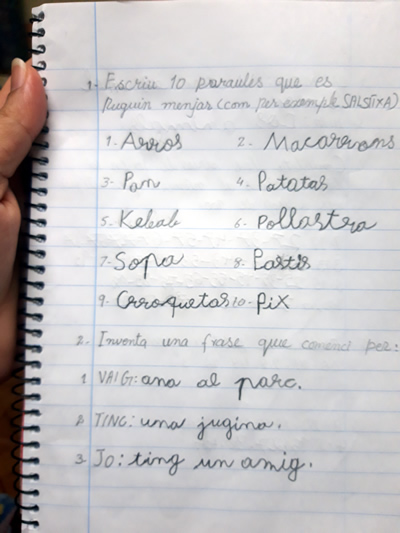 1- Escriu 10 paraules que es
puguin menjar (com per exemple SALSITXA)
1- Arros 2- Macarrons
3- Pan 4- Patatas
5- Kebab 6- Pollastra
7- Sopa 8- Pastis
9- Crroquetas 10- Pix
2- Inventa una frase que comenci per:
1 VAIG: ana al parc.
2 TINC: una jugina.
3- JO: ting un amig.